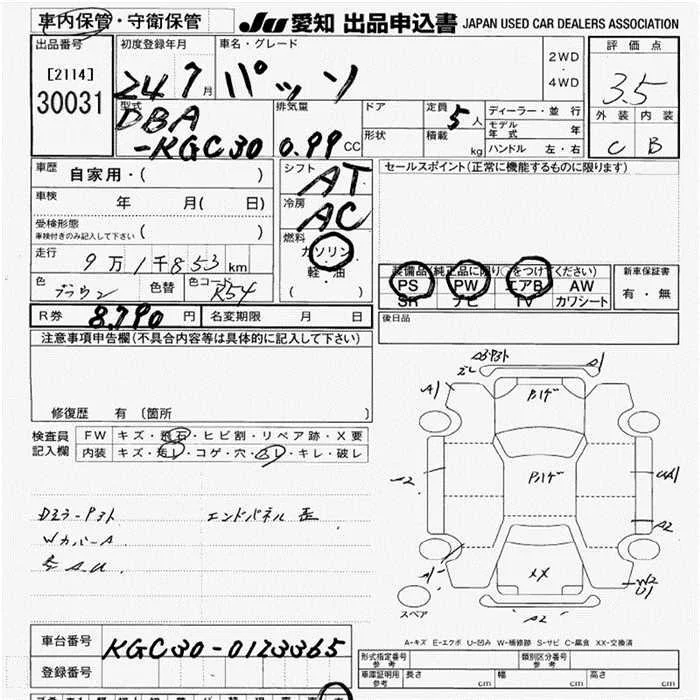 車内保管・守衛保管
Ju 愛知 出品申込書 JAPAN USED CAR DEALERS ASSOCIATION
出品番号
[2114]
30031
初度登録年月
24 7月
車名・グレード
パッソ
2WD
・
4WD
評価点
3.5
外装 内装
C B
型式
DBA
-KGC30
排気量
0.99 CC
ドア
形状
定員 5人
積載 kg
ディーラー・並行
モデル年式 年
ハンドル 左・右
車歴 自家用・( )
車検 年 月( 日)
受検形態
車検付きのみ記入して下さい ( )
走行 9万1千853km
色 ブラウン 色替 色コード R54
シフト AT
冷房 AC
燃料
ガソリン
軽・油
( )
セールスポイント(正常に機能するものに限ります)
装備品(純正品に限り○をつけてください)
PS PW エアB AW
SR ナビ TV カワシート
新車保証書
有・無
R券 8,790円 名変期限 月 日
後日品
注意事項申告欄(不具合内容等は具体的に記入して下さい)
修復歴 有〔箇所 〕
検査員記入欄
FW キズ・飛石・ヒビ割・リペア跡・X要
内装 キズ・汚レ・コゲ・穴・スレ・キレ・破レ
エンドパネル
WカバーA
A1
A1
A2
A2
A1
W2
U1
A2
XX
スペア
A-キズ E-エクボ U-凹み W-補修跡 S-サビ C-腐食 XX-交換済
車台番号 KGC30-0123365
登録番号
形式指定番号 参考
類別区分番号 参考
車庫証明用 参考 長さ cm 幅 cm 高さ cm